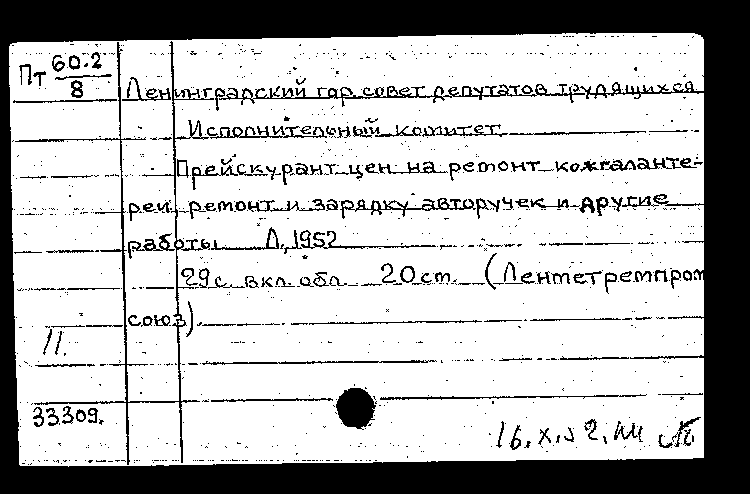 Пт 60.2
8
Ленинградский гор. совет депутатов трудящихся
Исполнительный комитет
Прейскурант цен на ремонт кожгаланте-
реи, ремонт и зарядку авторучек и другие
работы Л., 1952
29 с. вкл. обл. 20 см. (Ленметремпром
союз).
11.
33309.
16.X.52.